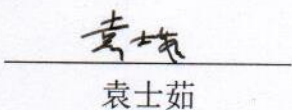 袁士茹
袁士茹